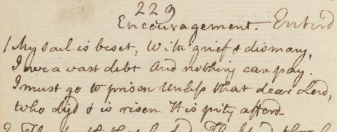 229
Encouragement. Enter'd
1 My soul is beset, With grief & dismay,
I owe a vast debt And nothing can pay.
I must go to prison Unless that dear Lord,
who dy'd & is risen. His pity afford.